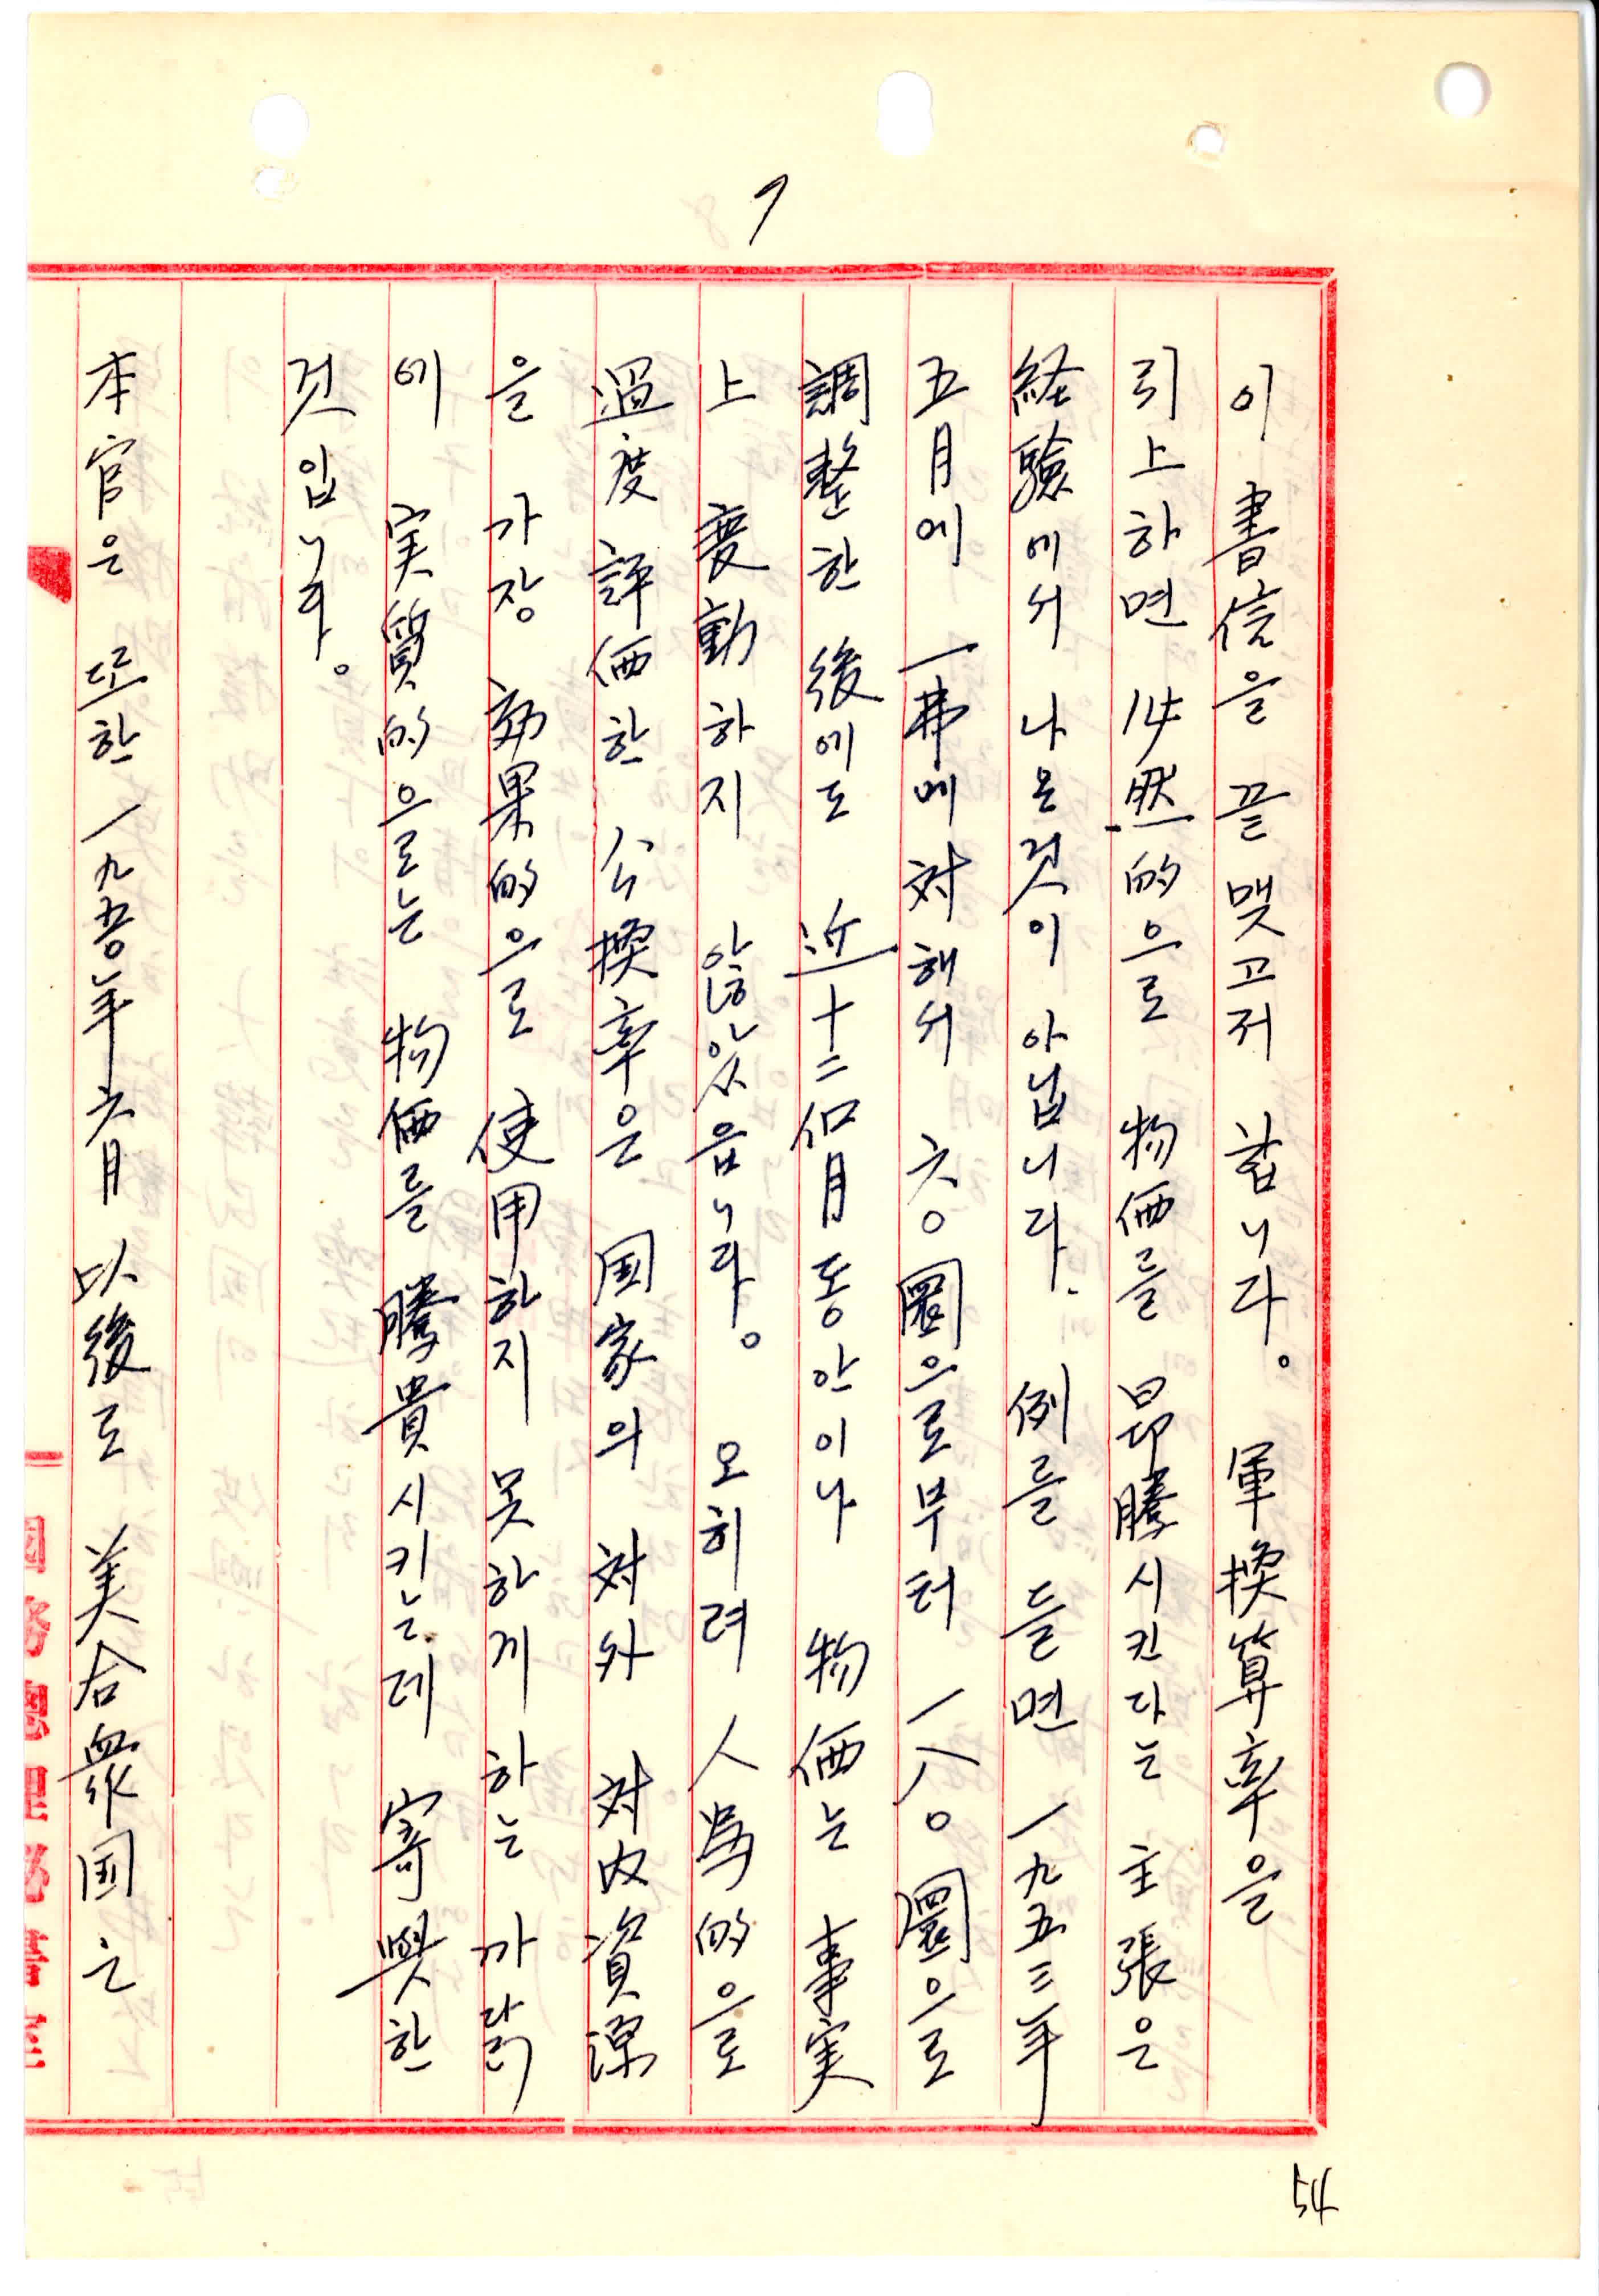 7
이 書信을 끝맺고저 합니다。 軍換算率을
引上하면 必然的으로 物価를 昻騰시킨다는 主張은
経驗에서 나온것이 아닙니다. 例를 들면 一九五三年
五月에 一弗에 対해서 六〇圜으로부터 一八〇圜으로
調整한 後에도 近十二個月동안이나 物価는 事実
上 変動하지 않았읍니다。 오히려 人為的으로
過度評価한 公換率은 国家의 対外 対内資源
을 가장 効果的으로 使用하지 못하게 하는 까닭
에 実質的으로는 物価를 騰貴시키는데 寄與한
것입니다。
本官은 또한 一九五〇年六月 以後로 美合衆国은
54